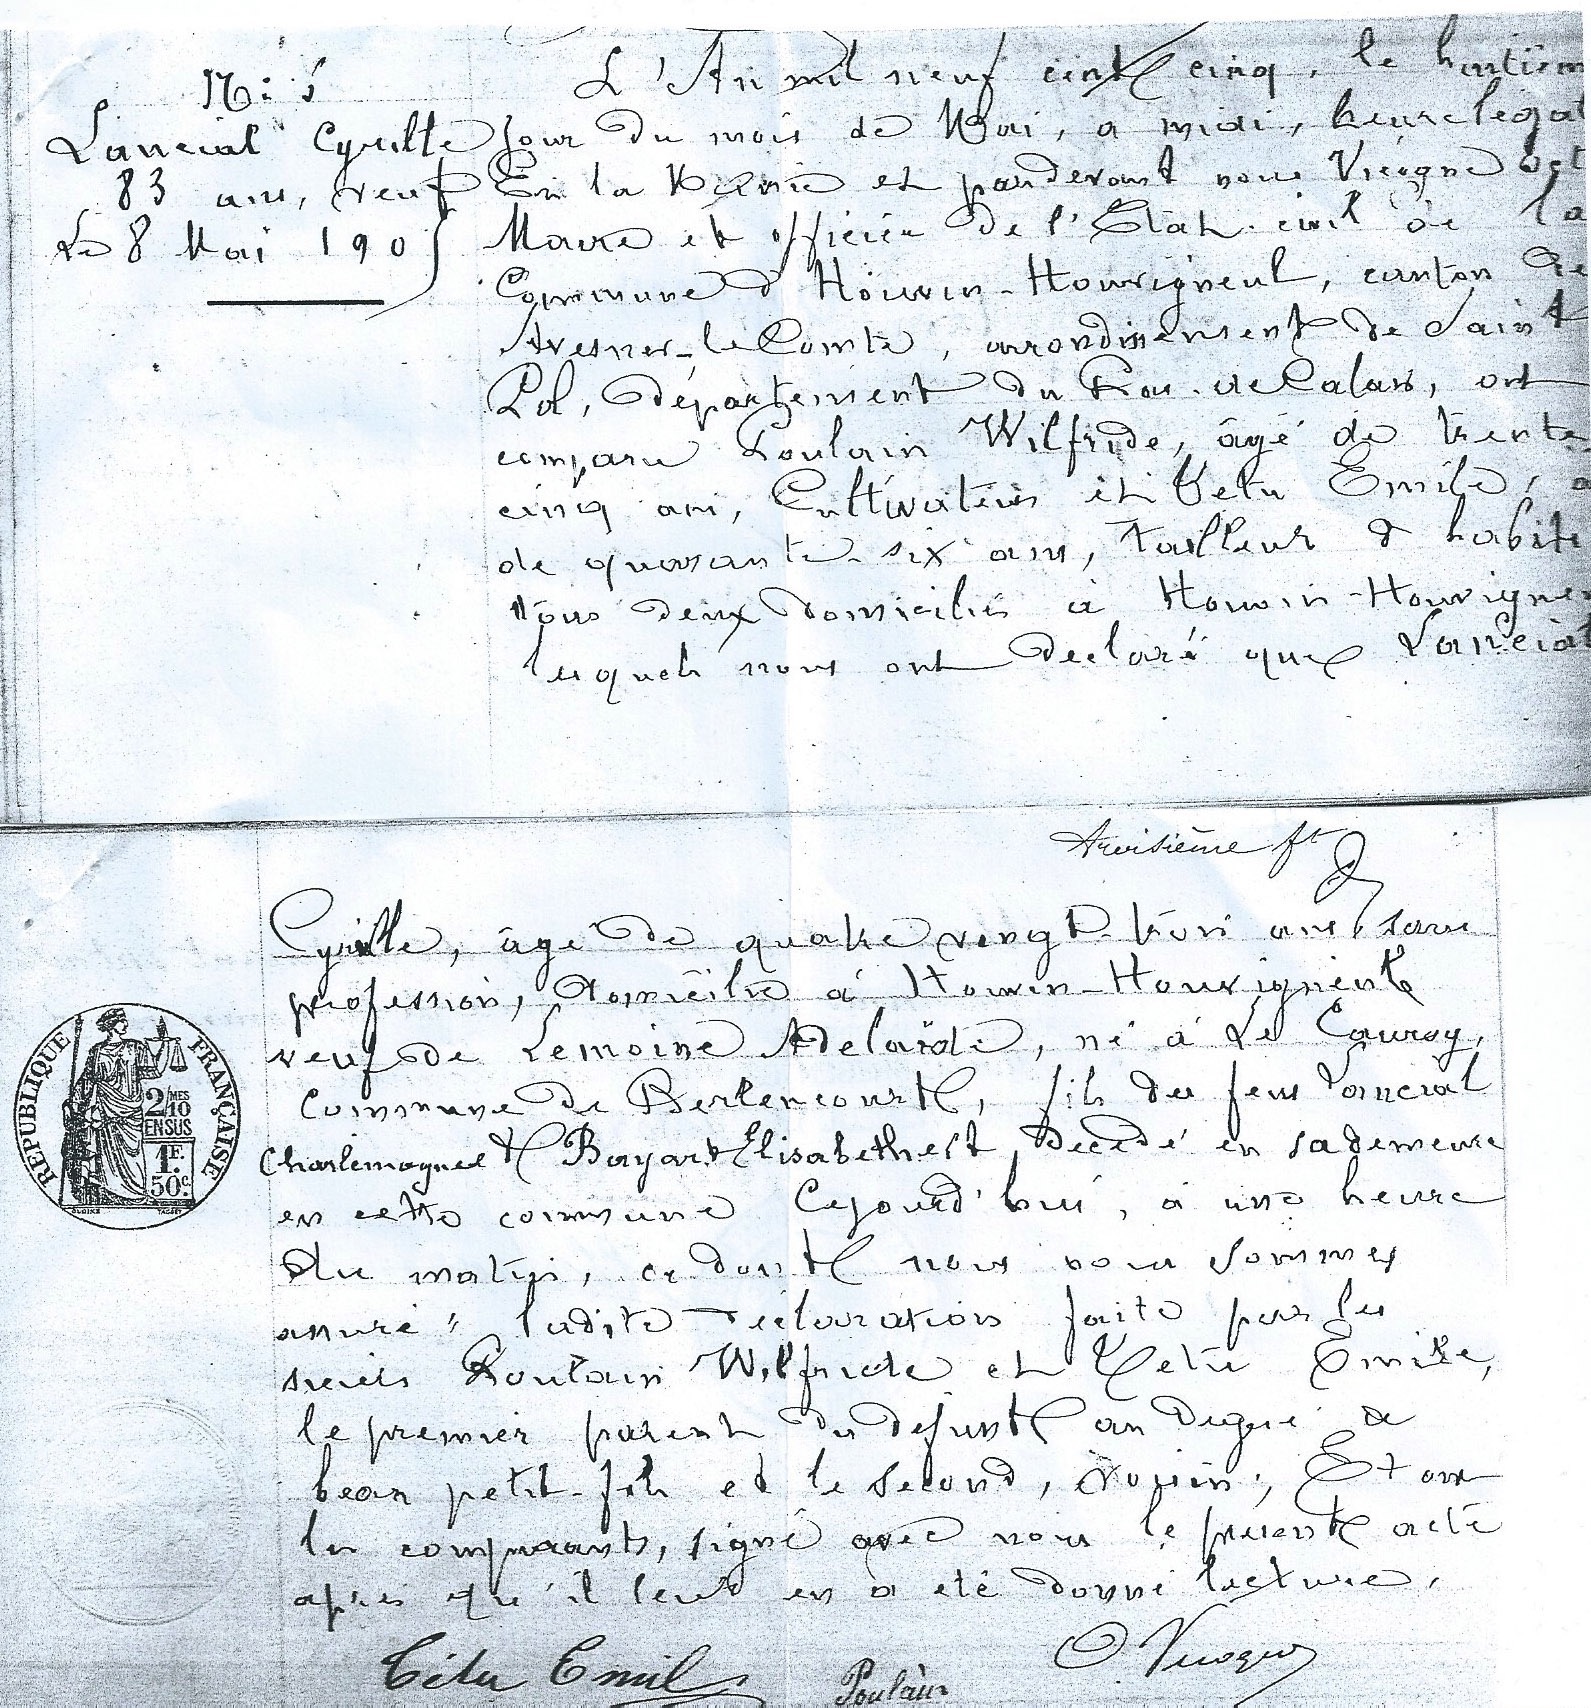 N: 5
Lancial Cyrille
83 ans, veuf
Le 8 Mai 1905
L'An mil neuf cent cinq, le huitièm
jour du mois de Mai, a midi, heure légal
En la Mairie et pardevant nous Viéogne
Maire et officier de l'Etat-civil de la
Commune d'Houvin-Houvigneul, canton de
Avesnes-le Comte, arrondissement de Saint
Pol, département du Pas-de Calais, ont
comparu Poulain Wilfride, âgé de trente
cinq ans, Cultivateur et Betu Emile, a
de quarante-six ans, tailleur d habits
tous deux domiciliés à Houvin-Houvigne
lesquels nous ont declaré que Lancial
troisième ft
Cyrille, âgé de quatre vingt-trois ans, sans
profession, domicilié à Houvin-Houvigneul
veuf de Lemoine Adelaïde, né à Le Cauroy,
commune de Berlencourt, fils des feus Lancial
Charlemagne et Bayart Elisabeth est decédé en sa demeure
en cette commune Cejourd'hui, à une heure
du matin, ce dont nous nous sommes
assuré; ladite déclaration faite par les
sieurs Poulain Wilfride et Betu Emile,
le premier parent du defunt au degré de
beau petit-fils et le second, voisin; Et ont
les comparants, signé avec nous le présent acte
après qu'il leur en a eté donné lecture.
RÉPUBLIQUE FRANÇAISE
2/10 MES
EN SUS
1F.
50c.
Bétu Emil
Poulain